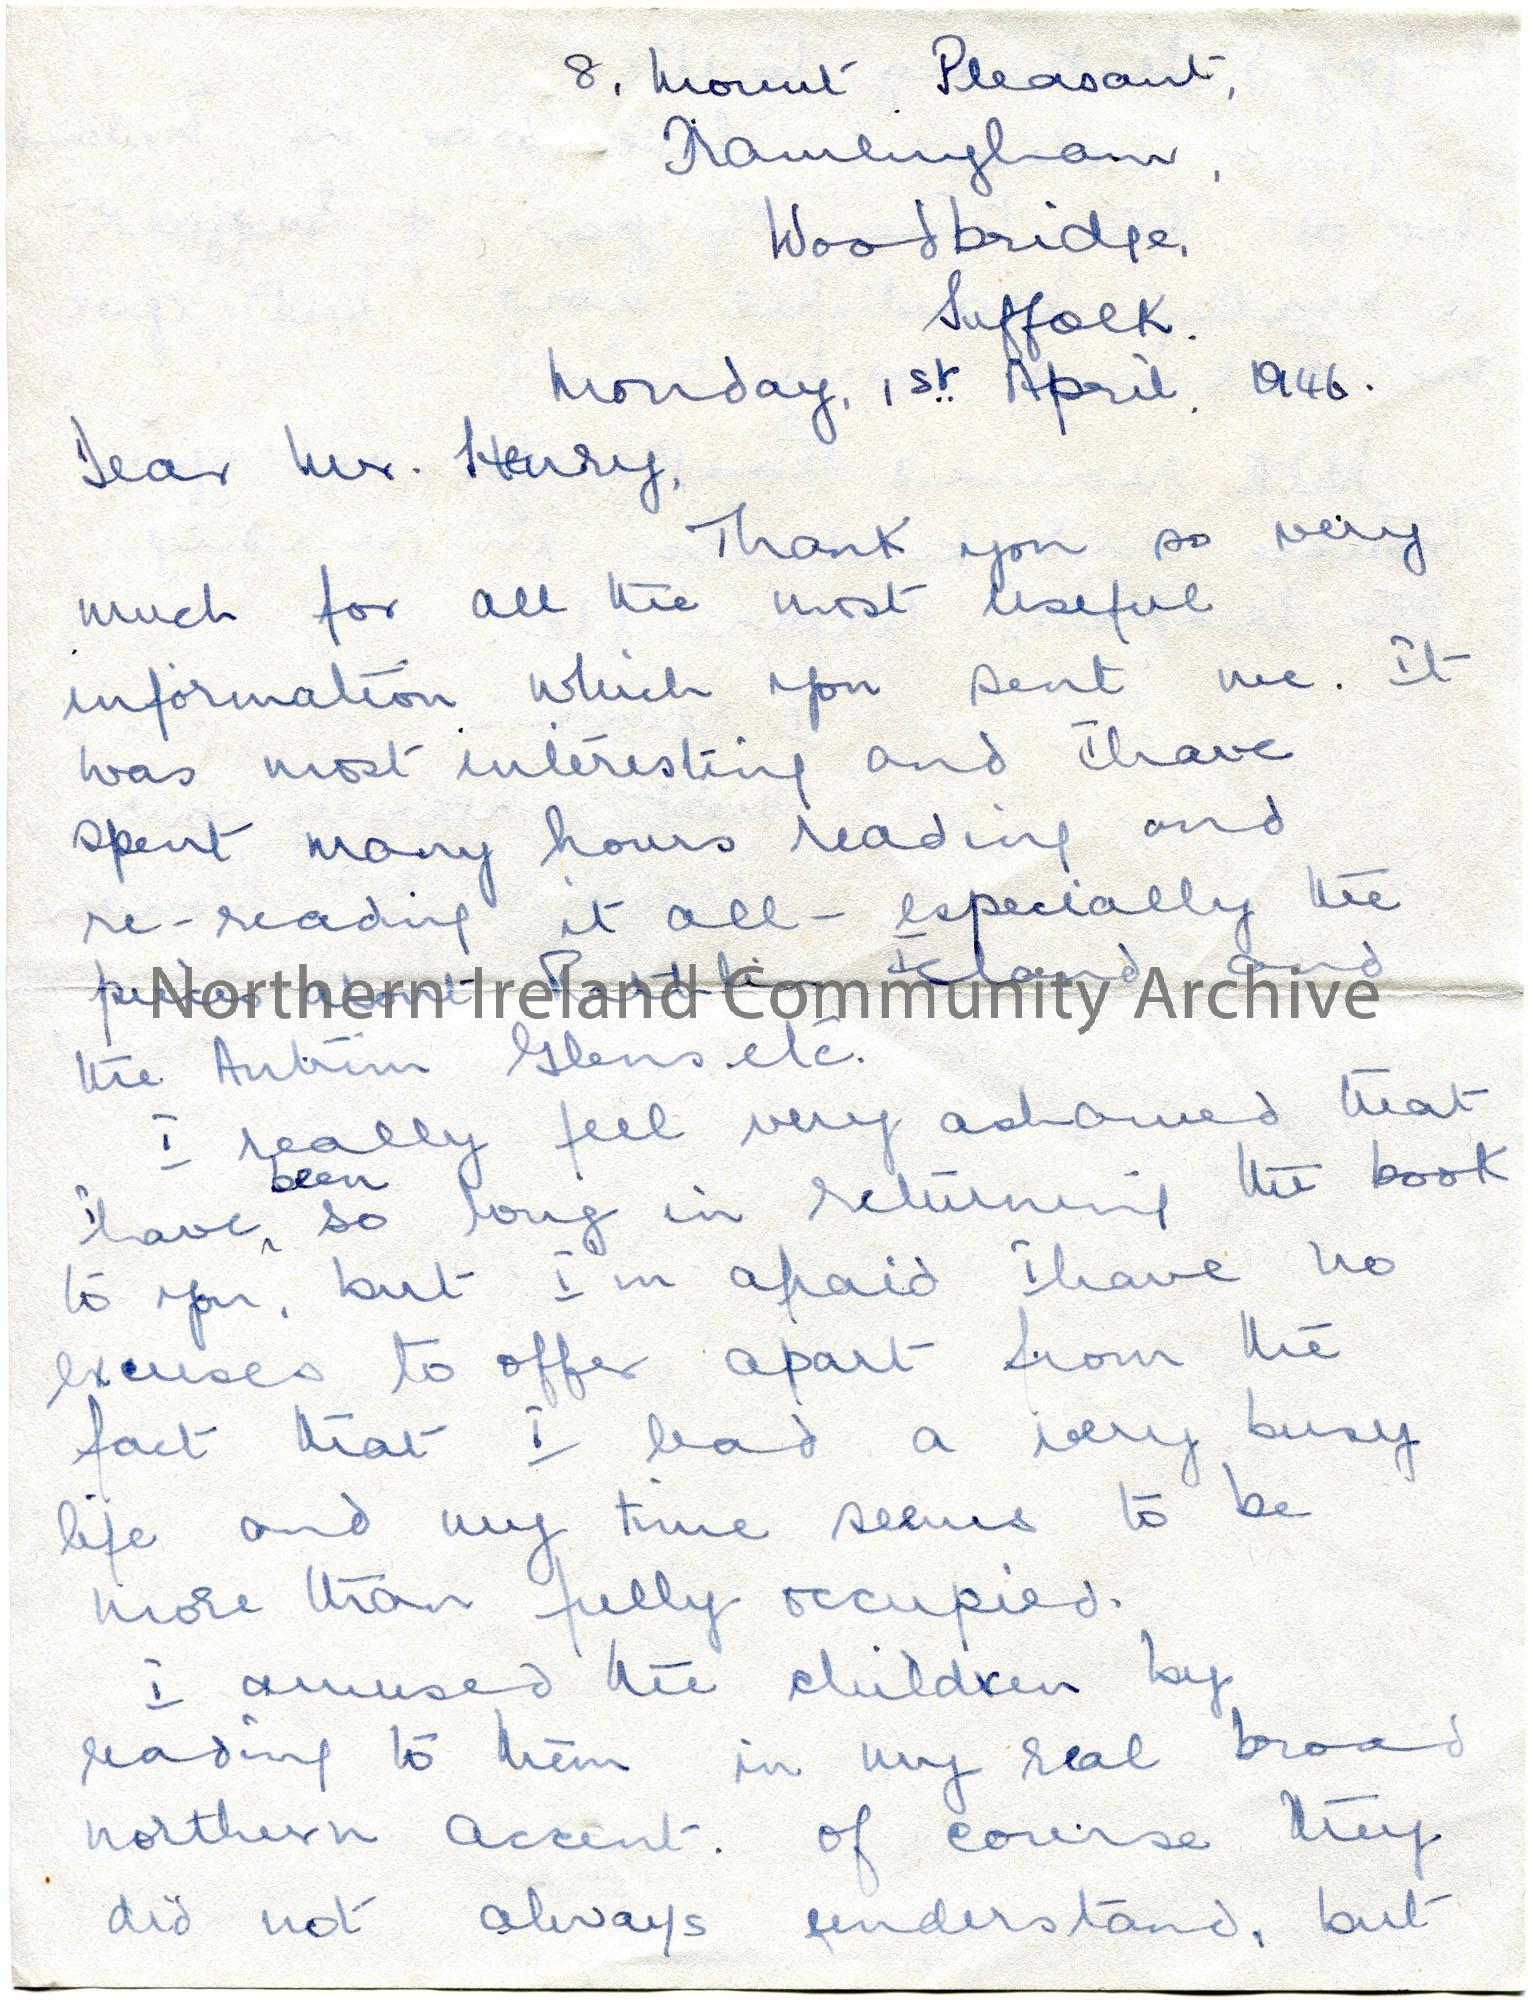 8, Mount Pleasant,
Framlingham,
Woodbridge,
Suffolk.
Monday, 1st April, 1946.
Dear Mr. Henry,
Thank you so very
much for all the most useful
information which you sent me. It
was most interesting and I have
spent many hours reading and
re-reading it all - especially the
pieces about Rathlin Island and
Northern Ireland Community Archive
the Antrim Glens etc.
I really feel very ashamed that
I have been so long in returning the book
to you, but I'm afraid I have no
excuses to offer apart from the
fact that I lead a very busy
life and my time seems to be
more than fully occupied.
I amused the children by
reading to them in my real broad
northern accent. Of course they
did not always understand, but